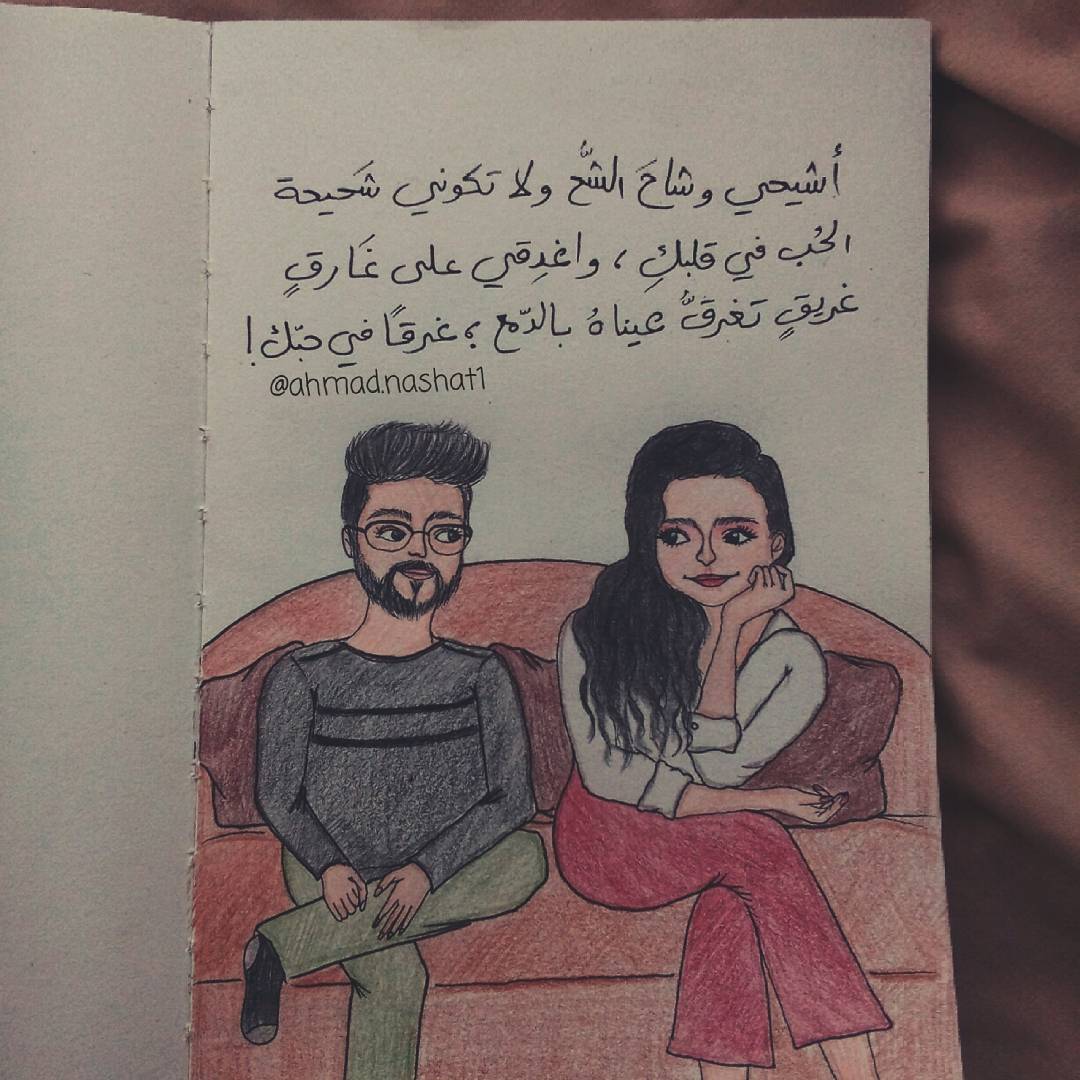 أشيحي وشاحَ الشُّح ولا تكوني شَحيحة
الحُب في قلبكِ ، واغدِقي على غَارقٍ
غريقٍ تغرقُّ عيناهُ بالدّمع ؛ غرقًا في حبّك !
@ahmad.nashat1